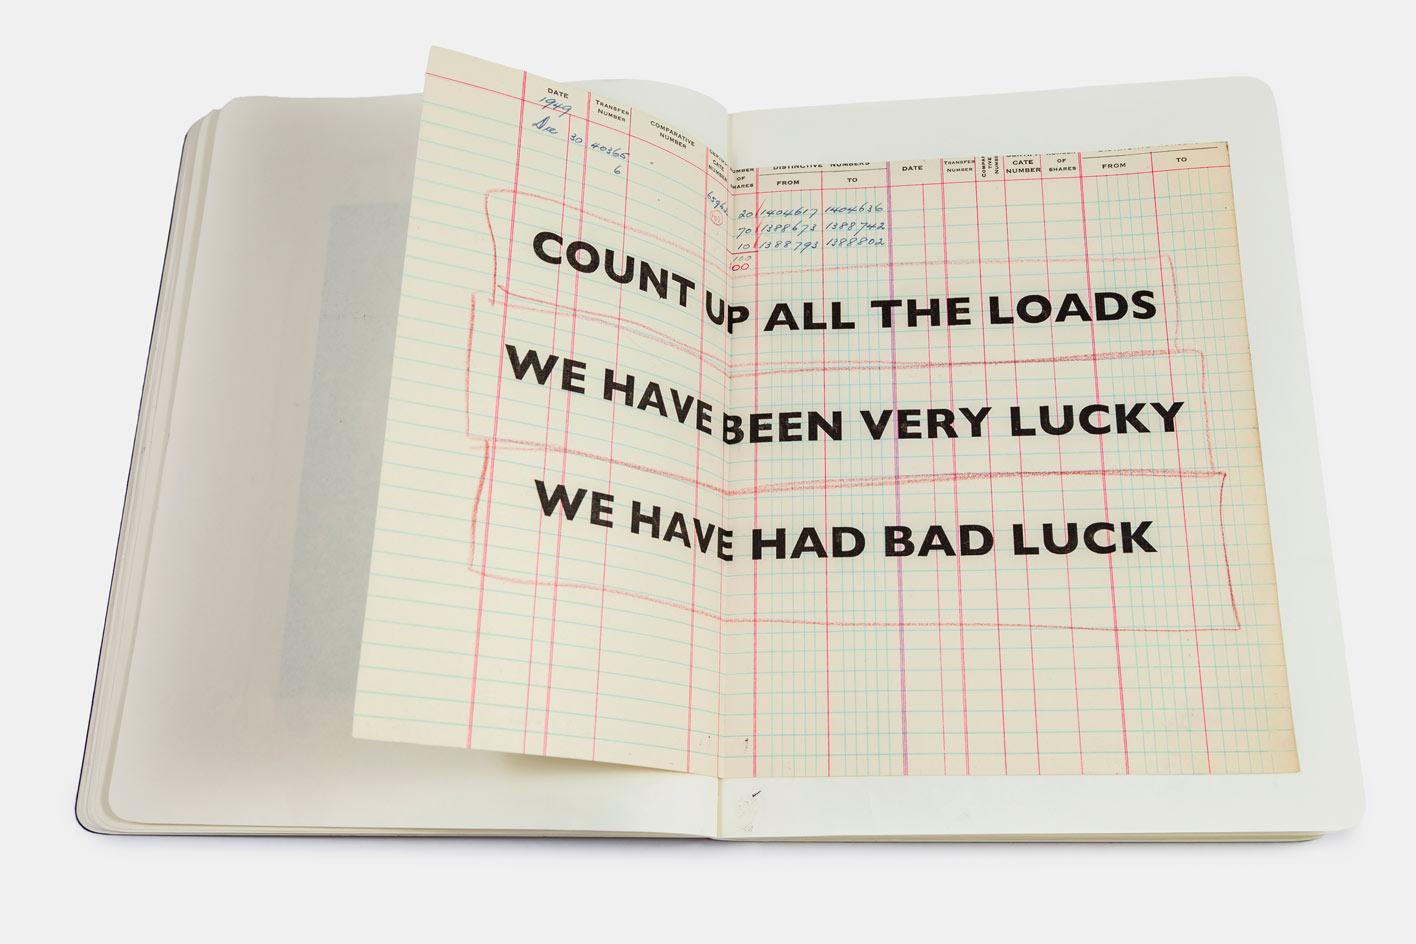 DATE TRANSFER NUMBER COMPARATIVE NUMBER
1949
Dec 30 40365
6
NUMBER OF SHARES DISTINCTIVE NUMBERS FROM TO DATE TRANSFER NUMBER CERTIFICATE NUMBER OF SHARES FROM TO
20 1404617 1404636
70 1388673 1388742
10 1388793 1388802
100
COUNT UP ALL THE LOADS
WE HAVE BEEN VERY LUCKY
WE HAVE HAD BAD LUCK